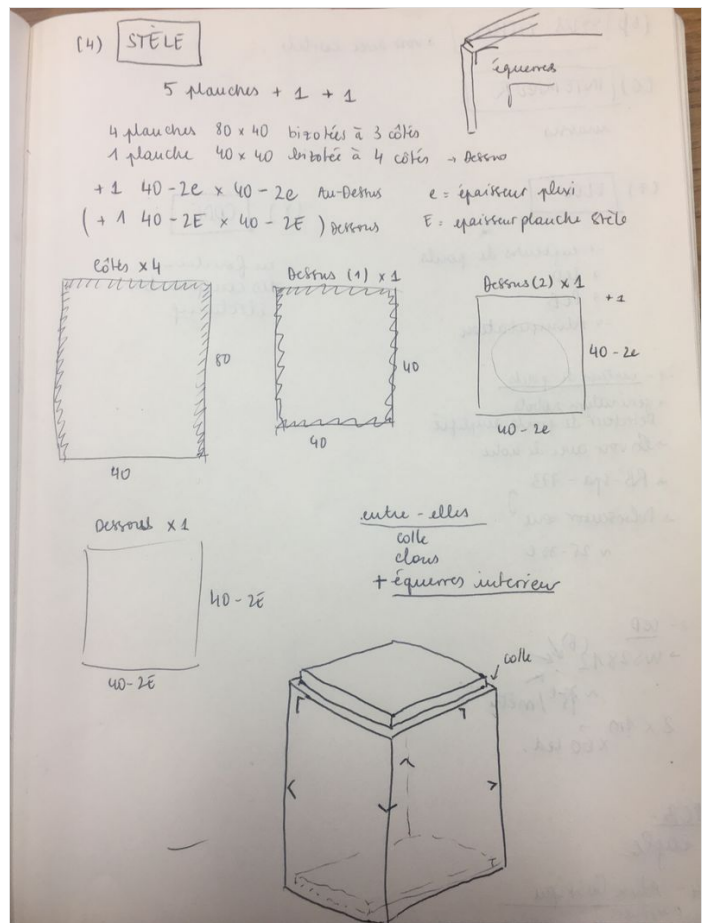 (4) STÈLE
équerres
5 planches + 1 + 1
4 planches 80 x 40 bizotées à 3 côtés
1 planche 40 x 40 bizotée à 4 côtés → Dessus
+ 1 40-2e x 40-2e Au-Dessus
e = épaisseur plexi
(+ 1 40-2E x 40-2E) Dessous
E = epaisseur planche Stèle
Côtés x4
80
40
Dessus (1) x 1
40
40
Dessus (2) x 1
+1
40-2e
40-2e
Dessous x1
40-2E
40-2E
entre-elles
colle
clous
+ équerres interieur
colle